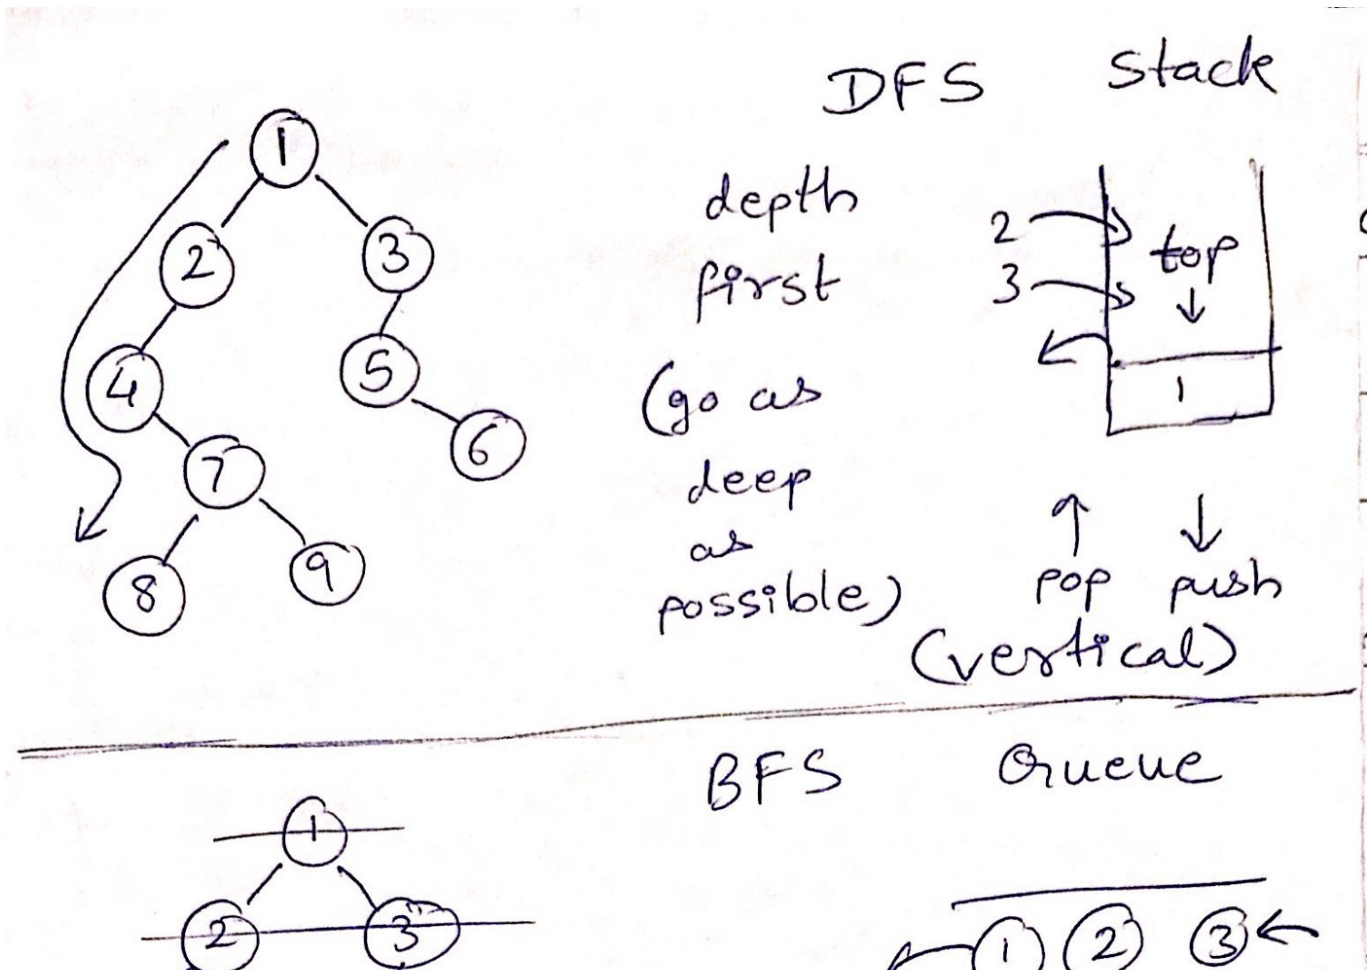 DFS Stack
1
2 3
4 5
6
7
8 9
depth
first
(go as
deep
as
possible)
2
3
top
1
pop push
(vertical)
BFS Queue
1
2 3
1 2 3